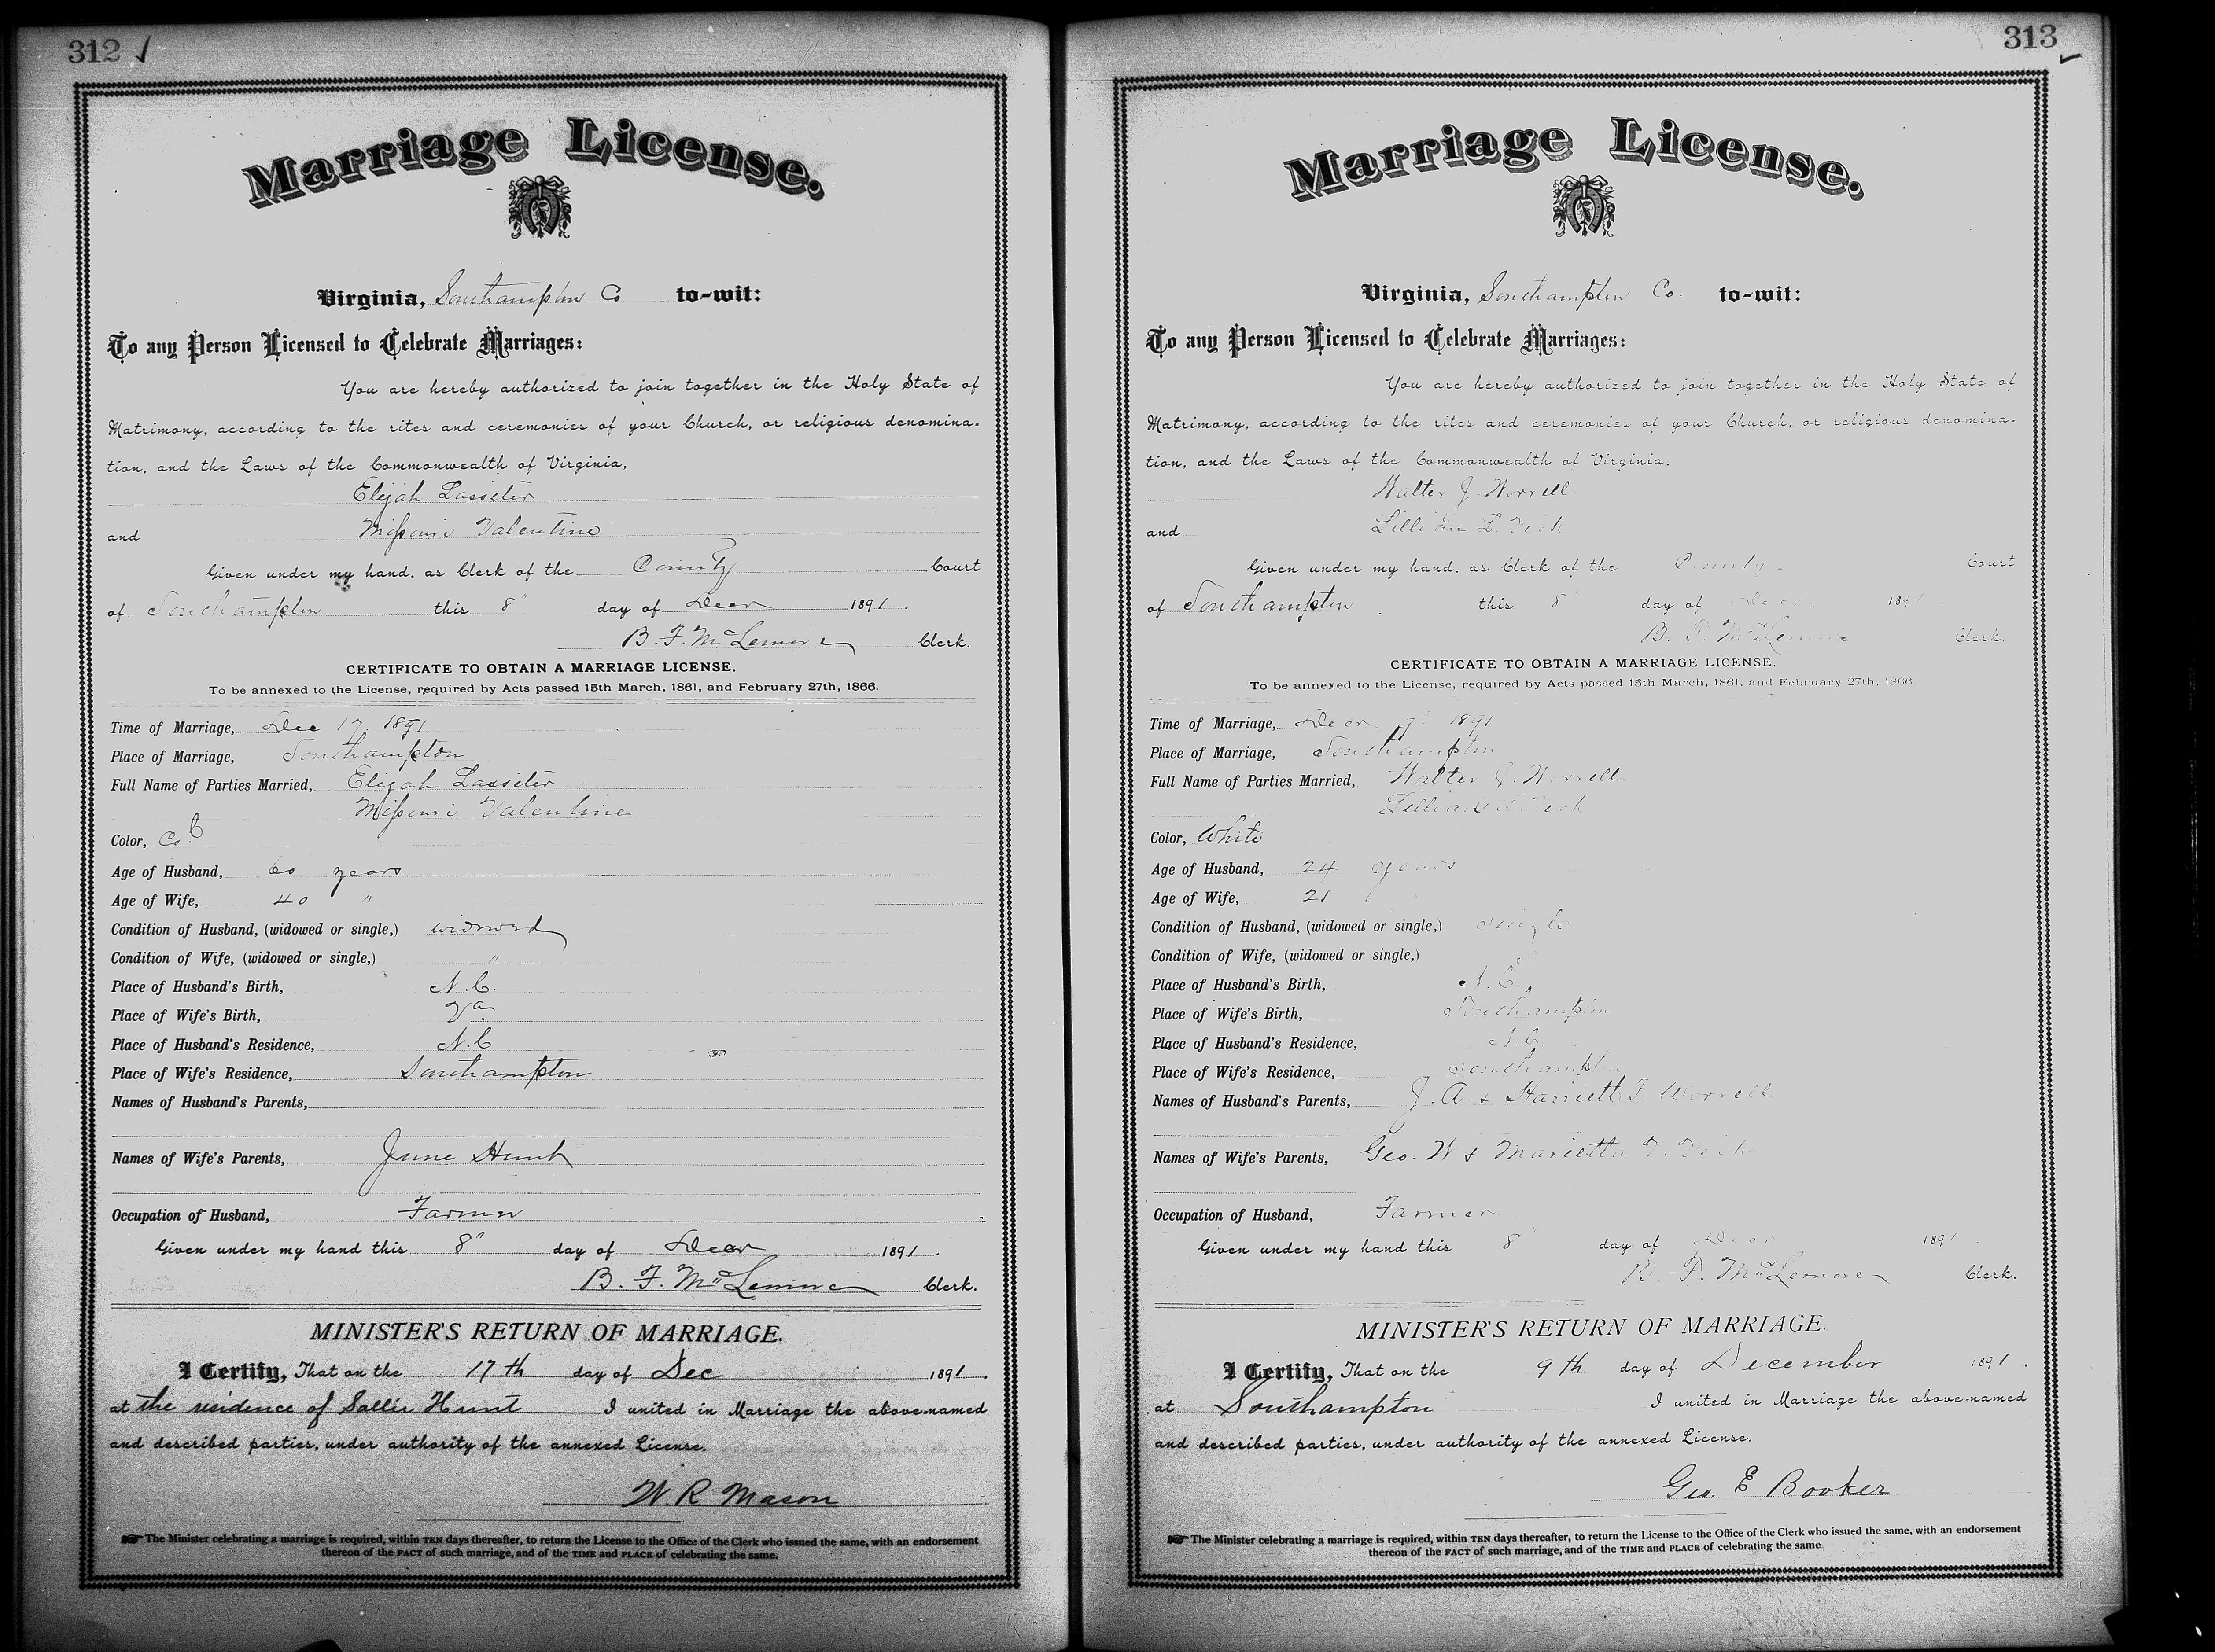 312
Marriage License.
Virginia, Southampton Co to-wit:
To any Person Licensed to Celebrate Marriages:
You are hereby authorized to join together in the Holy State of
Matrimony, according to the rites and ceremonies of your Church, or religious denomina-
tion, and the Laws of the Commonwealth of Virginia,
Elijah Lassiter
and Missouri Valentine
Given under my hand, as Clerk of the County Court
of Southampton this 8" day of Decr 1891.
B. F. McLemore Clerk.
CERTIFICATE TO OBTAIN A MARRIAGE LICENSE.
To be annexed to the License, required by Acts passed 15th March, 1861, and February 27th, 1866.
Time of Marriage, Dec 17, 1891
Place of Marriage, Southampton
Full Name of Parties Married, Elijah Lassiter
Missouri Valentine
Color, Col
Age of Husband, 60 years
Age of Wife, 40 "
Condition of Husband, (widowed or single,) widowed
Condition of Wife, (widowed or single,) "
Place of Husband's Birth, N.C.
Place of Wife's Birth, Va
Place of Husband's Residence, N.C
Place of Wife's Residence, Southampton
Names of Husband's Parents,
Names of Wife's Parents, June Hunt
Occupation of Husband, Farmer
Given under my hand this 8" day of Decr 1891.
B. F. McLemore Clerk.
MINISTER'S RETURN OF MARRIAGE.
I Certify, That on the 17th day of Dec 1891.
at the residence of Sallie Hunt I united in Marriage the above-named
and described parties, under authority of the annexed License.
W. R Mason
The Minister celebrating a marriage is required, within TEN days thereafter, to return the License to the Office of the Clerk who issued the same, with an endorsement
thereon of the FACT of such marriage, and of the TIME and PLACE of celebrating the same.
313
Marriage License.
Virginia, Southampton Co. to-wit:
To any Person Licensed to Celebrate Marriages:
You are hereby authorized to join together in the Holy State of
Matrimony, according to the rites and ceremonies of your Church, or religious denomina-
tion, and the Laws of the Commonwealth of Virginia,
Walter J. Worrell
and Lillian
Given under my hand, as Clerk of the County Court
of Southampton this 8 day of Decr 1891
B. F. McLemore Clerk.
CERTIFICATE TO OBTAIN A MARRIAGE LICENSE.
To be annexed to the License, required by Acts passed 15th March, 1861, and February 27th, 1866
Time of Marriage, Decr 9 1891
Place of Marriage, Southampton
Full Name of Parties Married, Walter J. Worrell
Lillian
Color, White
Age of Husband, 24 years
Age of Wife, 21
Condition of Husband, (widowed or single,) Single
Condition of Wife, (widowed or single,) "
Place of Husband's Birth, N.C.
Place of Wife's Birth, Southampton
Place of Husband's Residence, N.C.
Place of Wife's Residence, Southampton
Names of Husband's Parents, J. A. & Harriett F. Worrell
Names of Wife's Parents, Geo. W & Marietta
Occupation of Husband, Farmer
Given under my hand this 8 day of Decr 1891
B. F. McLemore Clerk.
MINISTER'S RETURN OF MARRIAGE.
I Certify, That on the 9th day of December 1891.
at Southampton I united in Marriage the above-named
and described parties, under authority of the annexed License.
Geo. E Booker
The Minister celebrating a marriage is required, within TEN days thereafter, to return the License to the Office of the Clerk who issued the same, with an endorsement
thereon of the FACT of such marriage, and of the TIME and PLACE of celebrating the same